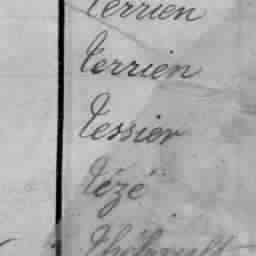 Terrien
Terrien
Tessier
Tézé